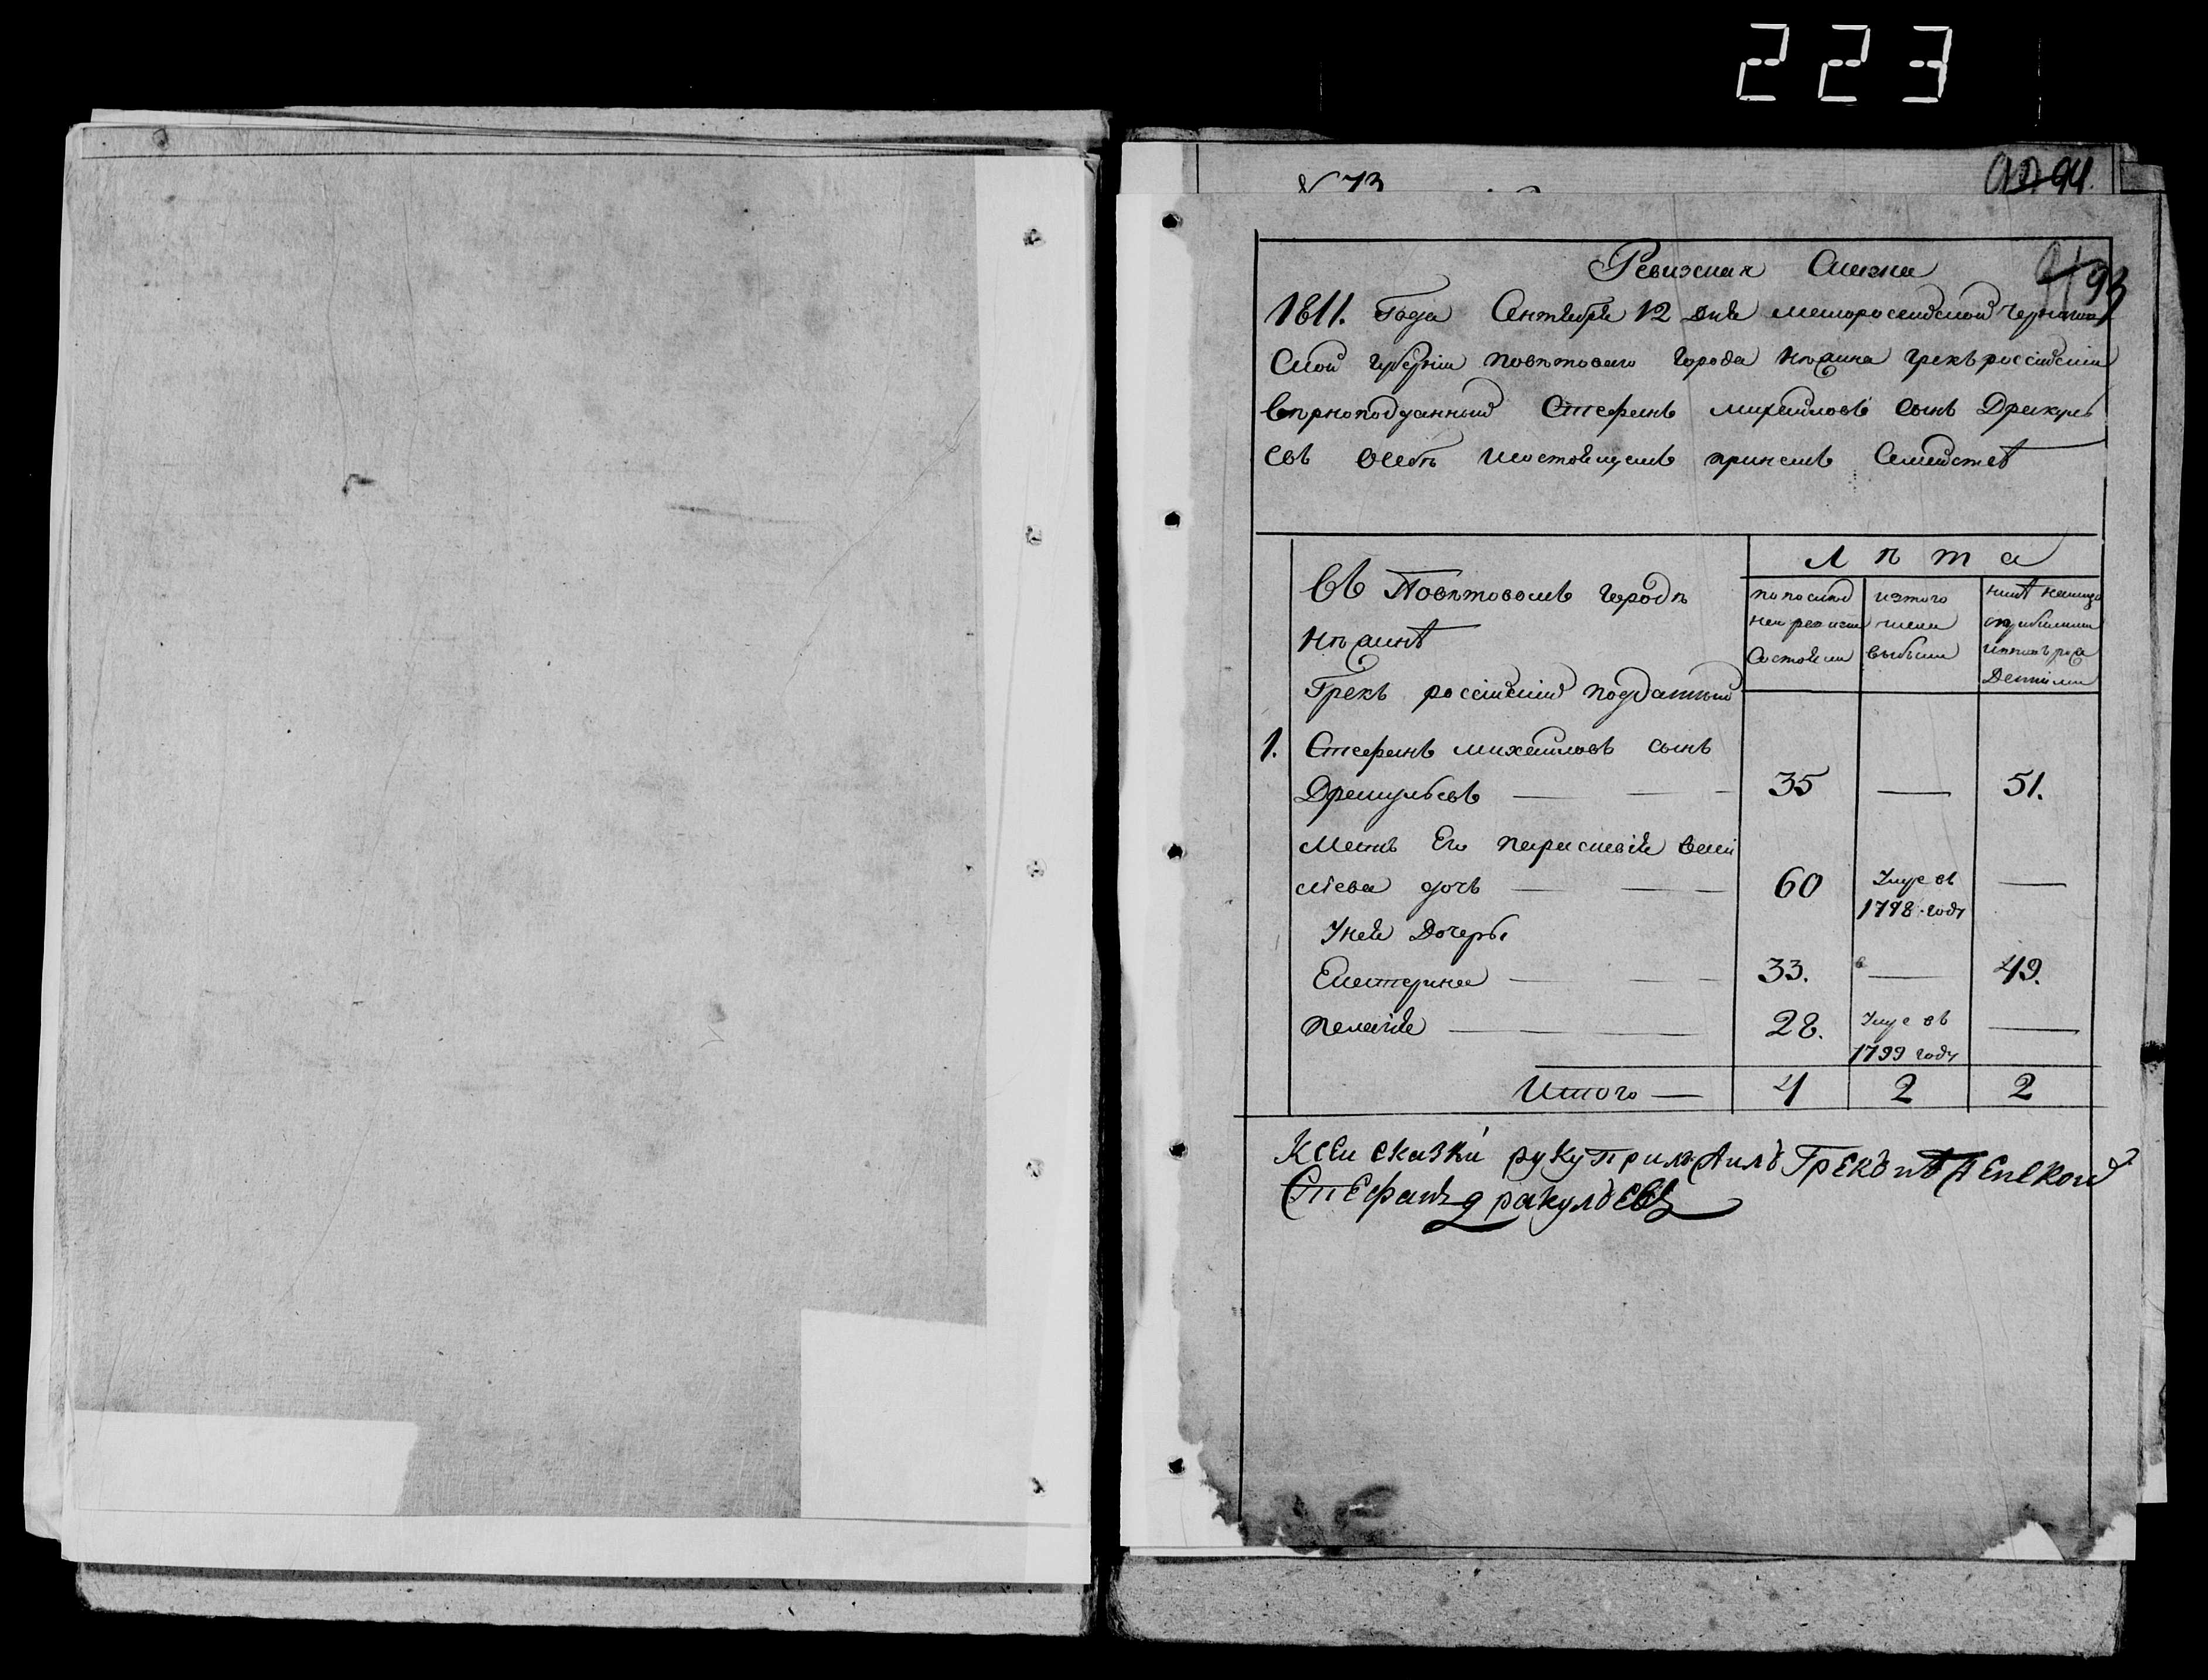 223
N 73
94.
93
Ревизская Сказка
1811. Года Сентября 12 дня малороссийской Чернигов
ской губернии поветоваго города Нежина грекъ россійскій
верноподданный Стефанъ михайловъ сынъ Дракуль
евъ о себе и состоящемъ при немъ Семействѣ
Лета
Въ Поветовомъ городе
Нежинѣ
Грекъ россійскій подданный
по послед
ней ревизіи
Состояли
изтого
числа
выбыли
нынѣ налицо
с прибылыми
и вновь рож
Деннiми
1. Стефанъ михайловъ сынъ
Дракульевъ 35 — 51.
Мать Его параскевія васи
ліева дочь 60 Умре въ 1798 году —
У нея Дочери
Екатерина 33. — 49.
пелагія 28. Умре въ 1799 году —
Итого — 4 2 2
К сеи сказки руку приложилъ Грекъ нѣженской
Стефанъ дракулъевъ